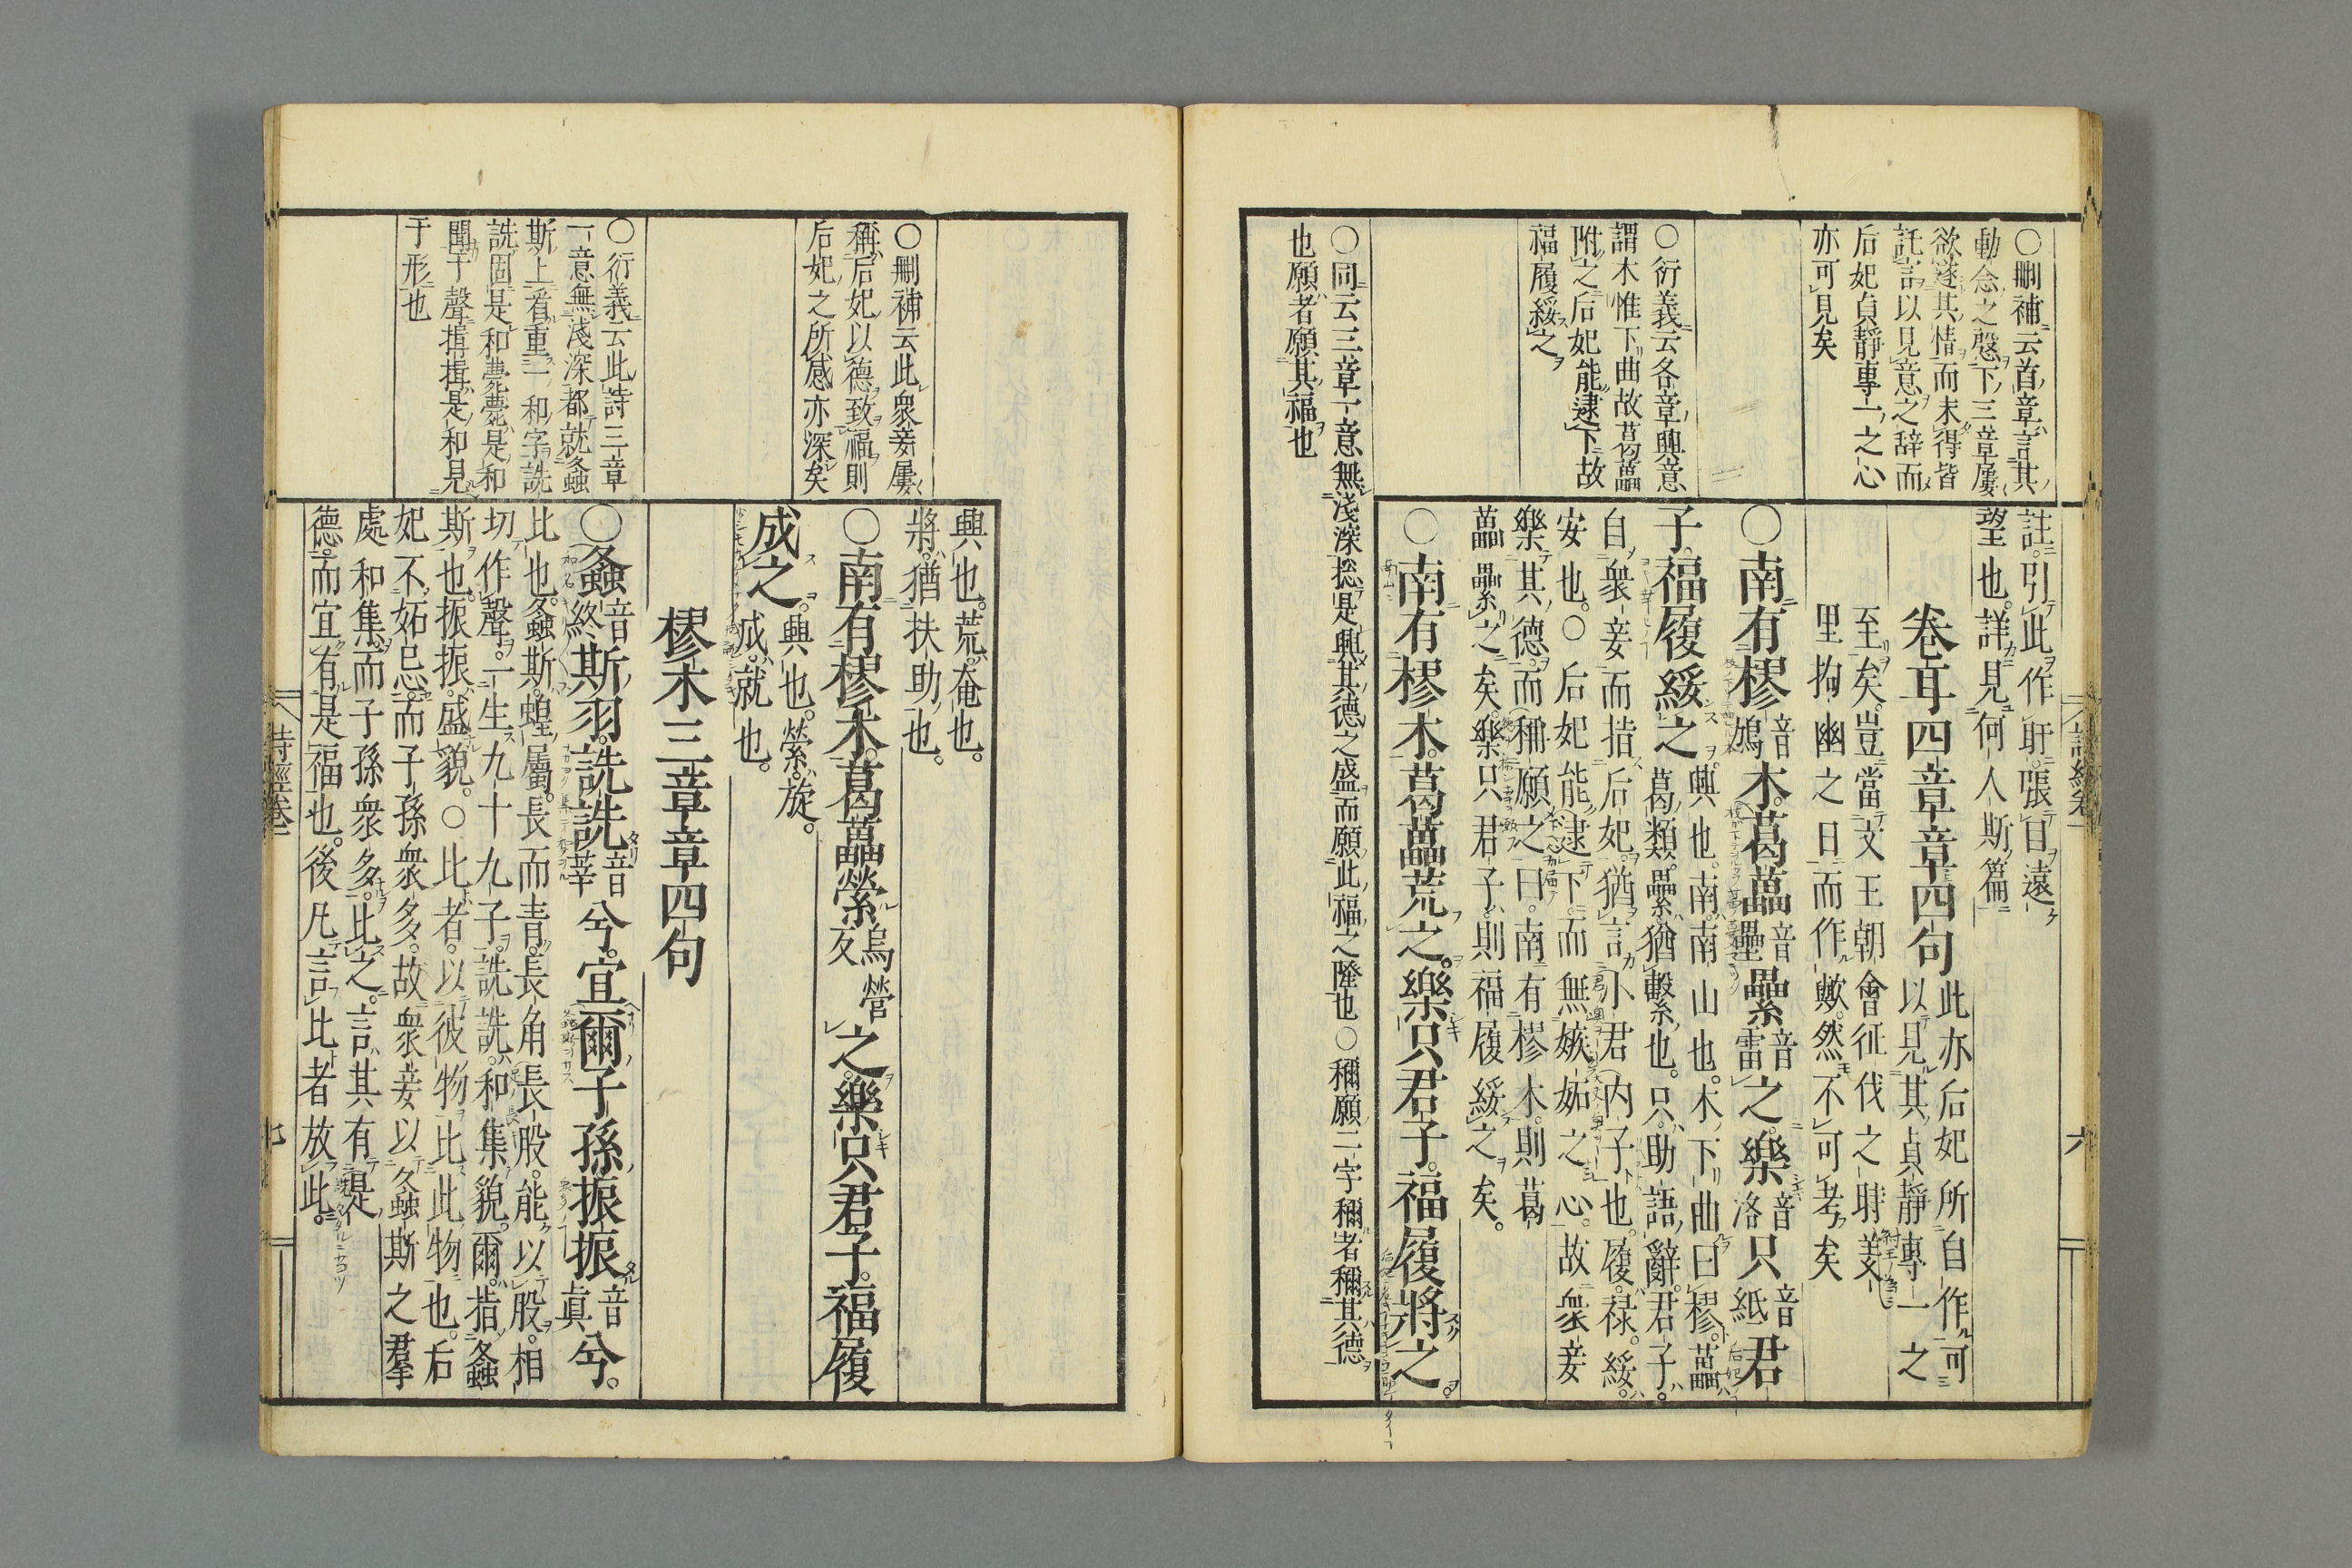 ○刪補云首章言其
動念之慇下三章屢
欲遂其情而未得皆
託言以見意之辞而
后妃貞靜專一之心
亦可見矣
○衍義云各章興意
謂木惟下曲故葛藟
附之后妃能逮下故
福履綏之
○同云三章一意無淺深捴是興其德之盛而願此福之隆也○稱願二字稱者稱其德
也願者願其福也
註引此作盱張目遠
望也。詳見何人斯篇
卷耳四章章四句此亦后妃所自作可
以見其貞靜專一之
至矣。豈當文王朝會征伐之時羑
里拘幽之日而作歟。然不可考矣
○南有樛音鳩木。葛藟音壘纍音雷之。樂音洛只音紙君
子。福履綏之。興也。南。南山也。木下曲曰樛。藟。
葛類。纍。猶繫也。只。助語辭。君子。
自衆妾而指后妃。猶言小君內子也。履。祿。綏。
安也。○后妃能逮下。而無嫉妬之心。故衆妾
樂其德。而稱願之曰。南有樛木。則葛
藟纍之矣。樂只君子。則福履綏之矣。
○南有樛木。葛藟荒之。樂只君子。福履將之。
○刪補云此衆妾屢
稱后妃以德致福則
后妃之所感亦深矣
○衍義云此詩三章
一意無淺深都就螽
斯上看重一和字詵
詵固是和薨薨是和
聞于聲揖揖是和見
于形也
興也。荒。奄也。
將。猶扶助也。
○南有樛木。葛藟縈烏營反之。樂只君子。福履
成之。興也。縈。旋。
成。就也。
樛木三章章四句
○螽音終斯羽。詵詵音莘兮。宜爾子孫振振音眞兮。
比也。螽斯。蝗屬。長而青。長角長股。能以股相
切作聲。一生九十九子。詵詵。和集貌。爾。指螽
斯也。振振。盛貌。○比者。以彼物比此物也。后
妃不妬忌。而子孫衆多。故衆妾以螽斯之羣
處和集。而子孫衆多。比之。言其有是
德。而宜有是福也。後凡言比者放此。
詩經卷一
七
詩經卷一
六